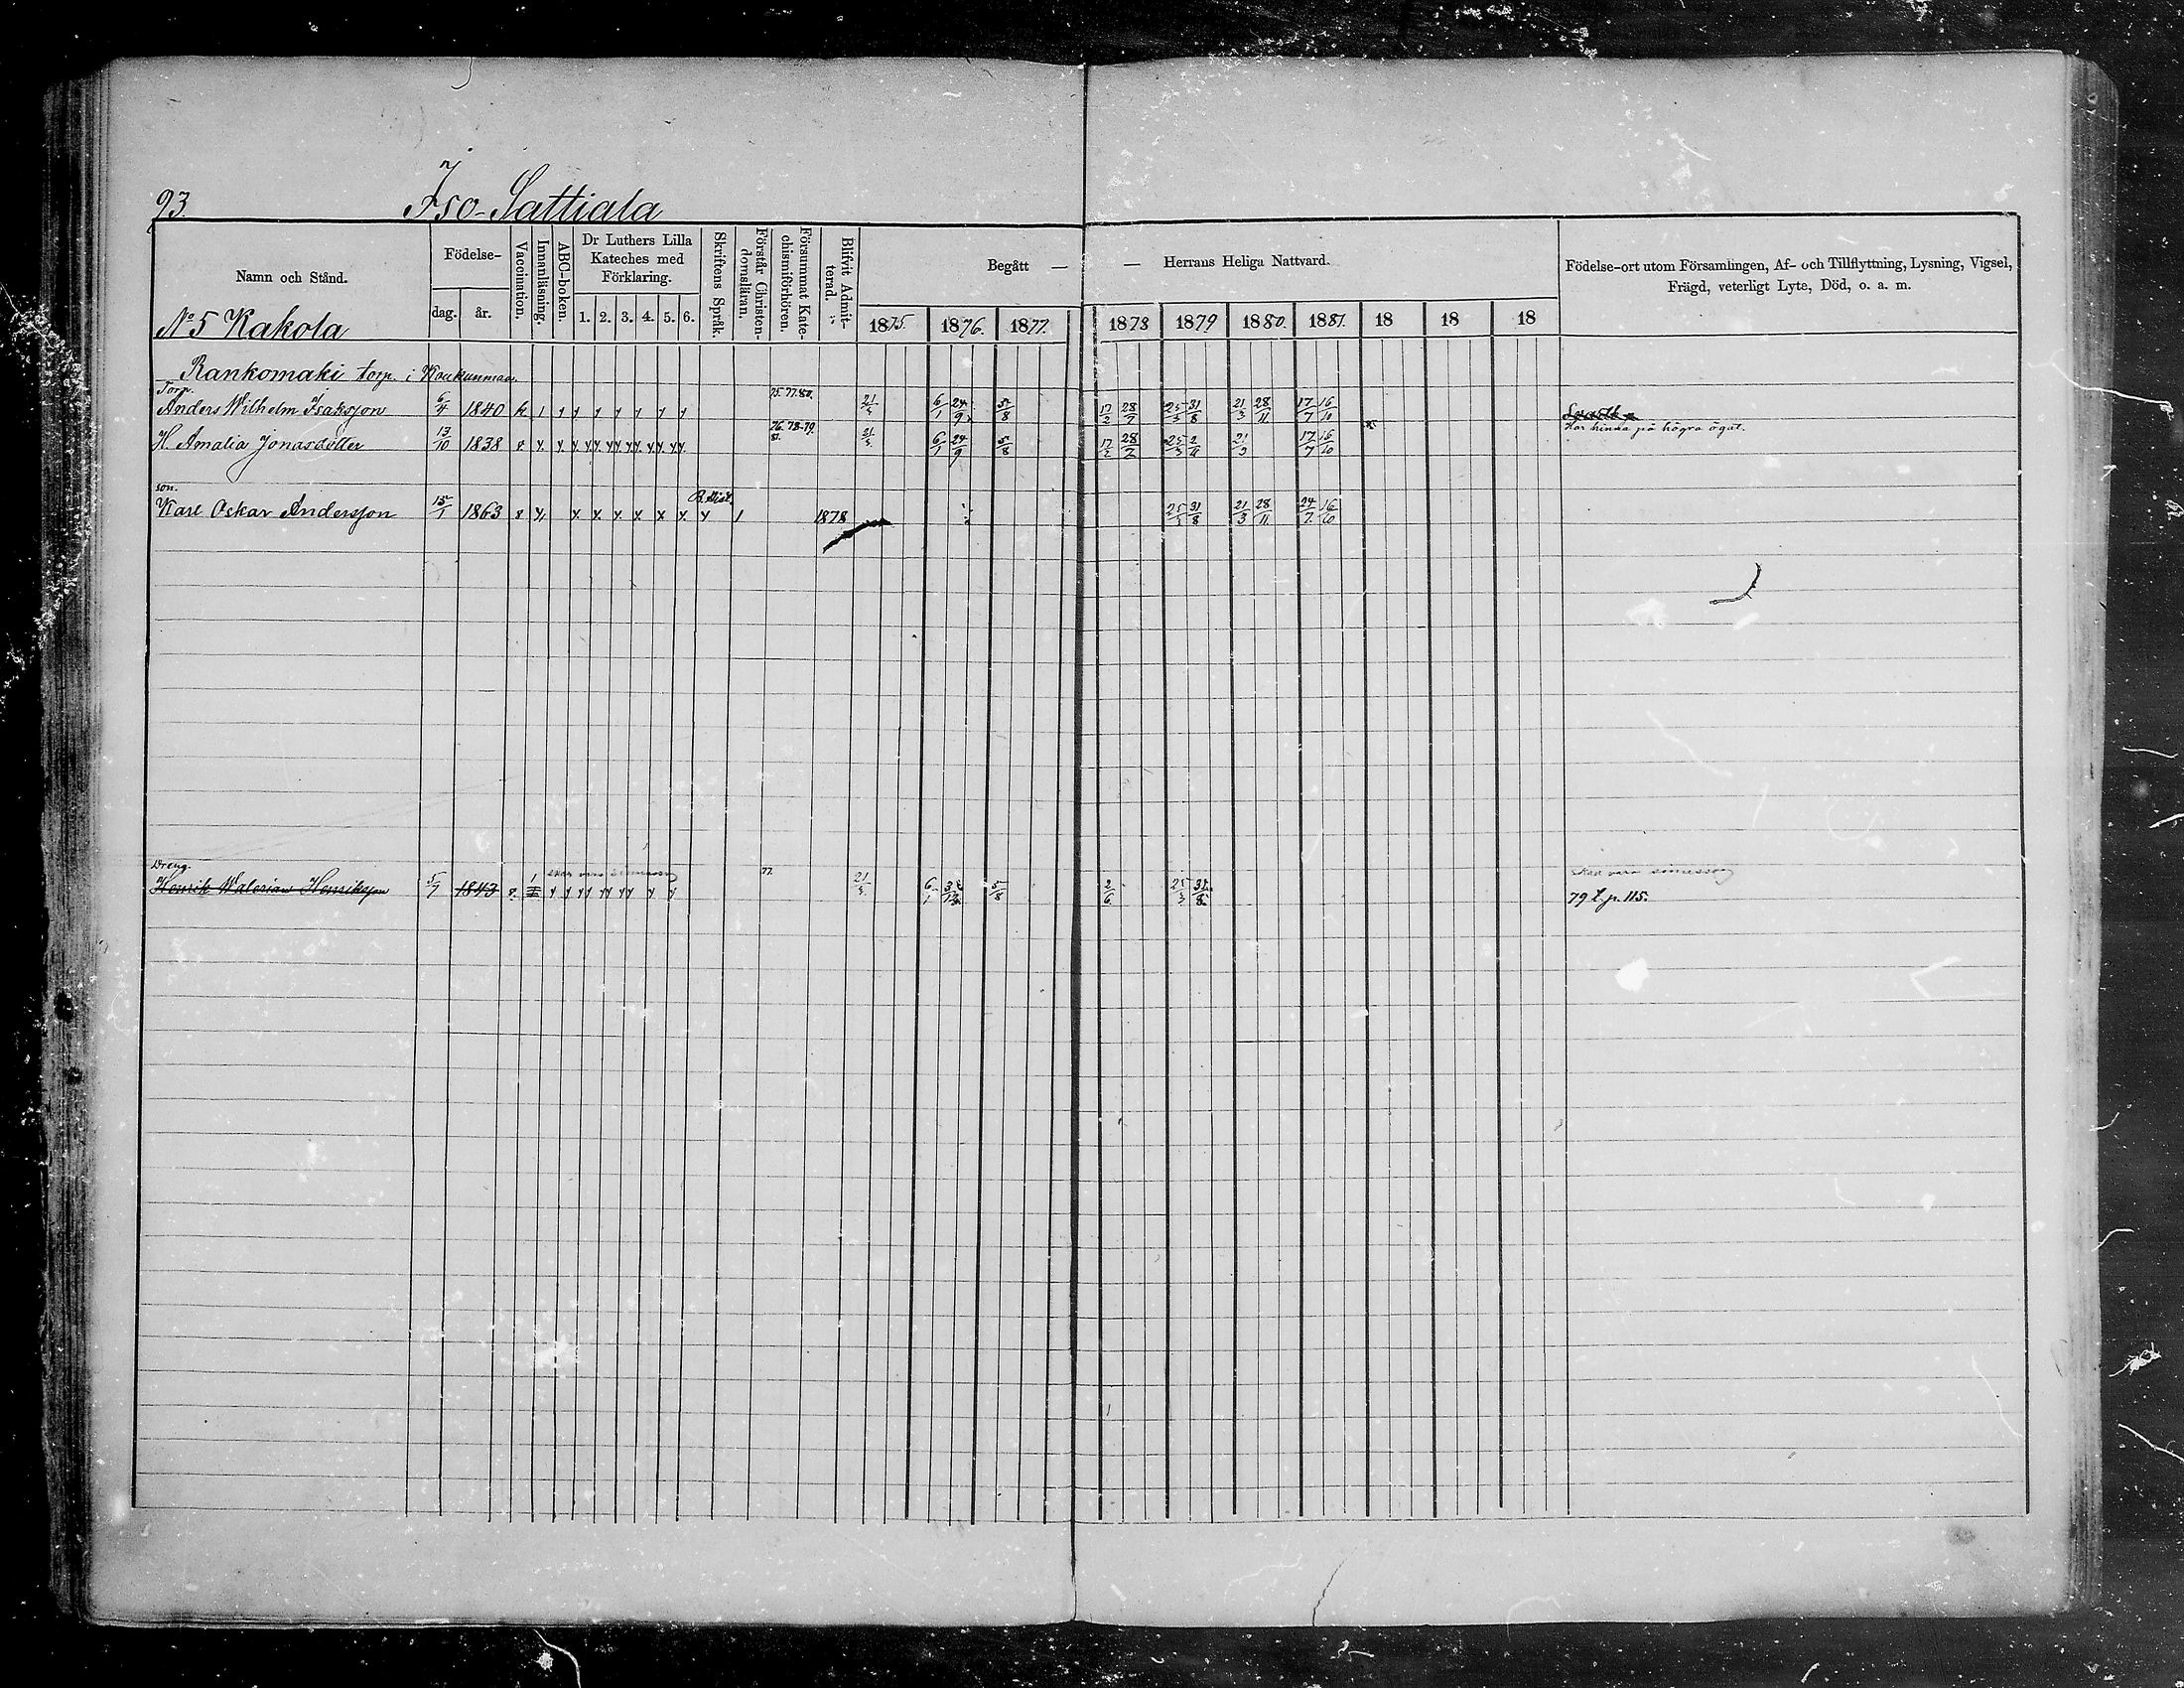 93.
Iso-Sattiala
Namn och Stånd.
Födelse-
dag. år.
Vaccination.
Innanläsning.
ABC-boken.
Dr Luthers Lilla
Kateches med
Förklaring.
1. 2. 3. 4. 5. 6.
Skriftens Språk.
Förstår Christen-
domsläran.
Försummat Kate-
chismiförhören.
Blifvit Admit-
terad.
Begått — — Herrans Heliga Nattvard.
1875. 1876. 1877. 1878 1879 1880. 1881. 18 18 18
Födelse-ort utom Församlingen, Af- och Tillflyttning, Lysning, Vigsel,
Frägd, veterligt Lyte, Död, o. a. m.
No 5 Kakola
Rankomäki torp. i
Torp.
Anders Wilhelm Isaksson 6/4 1840 75. 77. 80. 21/3 6/1 24/9 5/8 17/2 28/7 25/3 31/8 21/3 28/11 17/7 16/10
H. Amalia Jonasdotter 13/10 1838 76. 78. 79. 81. 21/3 6/1 24/9 5/8 17/2 28/7 25/3 21/3 17/7 16/10 Har hinna på högra ögat.
son.
Karl Oskar Andersson 15/1 1863 1878 25/3 31/8 21/3 28/11 24/7 16/10
Dreng.
Henrik Walerian Henriksson 5/7 1843 77 21/3 6/1 5/8 2/6 25/3 31/8 79 t. p. 115.
skall vara